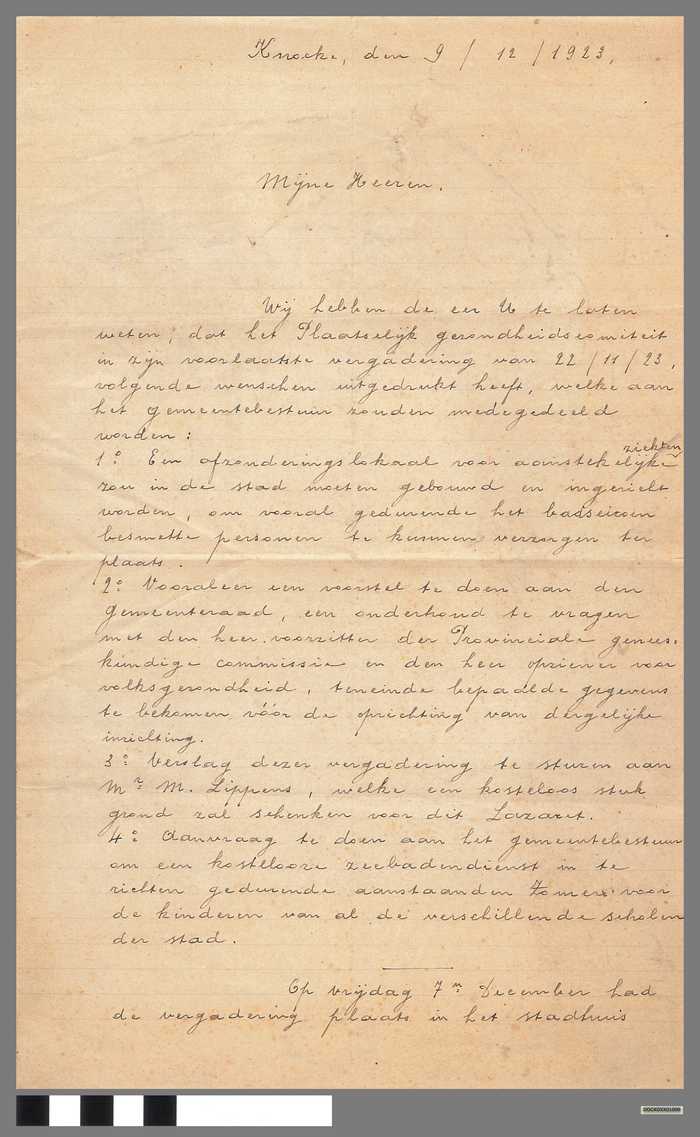 Knocke, den 9 / 12 / 1923,
Mijne Heeren.
Wij hebben de eer U te laten
weten, dat het Plaatselijk gezondheidscomiteit
in zijn voorlaatste vergadering van 22/11/23,
volgende wenschen uitgedrukt heeft, welke aan
het gemeentebestuur zouden medegedeeld
worden :
1º Een afzonderingslokaal voor aanstekelijke ziekten
zou in de stad moeten gebouwd en ingericht
worden, om vooral gedurende het badseizoen
besmette personen te kunnen verzorgen ter
plaats.
2º Vooraleer een voorstel te doen aan den
gemeenteraad, een onderhoud te vragen
met den heer voorzitter der Provinciale genees-
kundige commissie en den heer opziener voor
volksgezondheid, teneinde bepaalde gegevens
te bekomen vóór de oprichting van dergelijke
inrichting.
3º Verslag dezer vergadering te sturen aan
Mr M. Lippens, welke een kosteloos stuk
grond zal schenken voor dit Lazaret.
4º Aanvraag te doen aan het gemeentebestuur
om een kostelooze zeebadendienst in te
richten gedurende aanstaanden Zomer voor
de kinderen van al de verschillende scholen
der stad.
Op vrijdag 7n December had
de vergadering plaats in het stadhuis